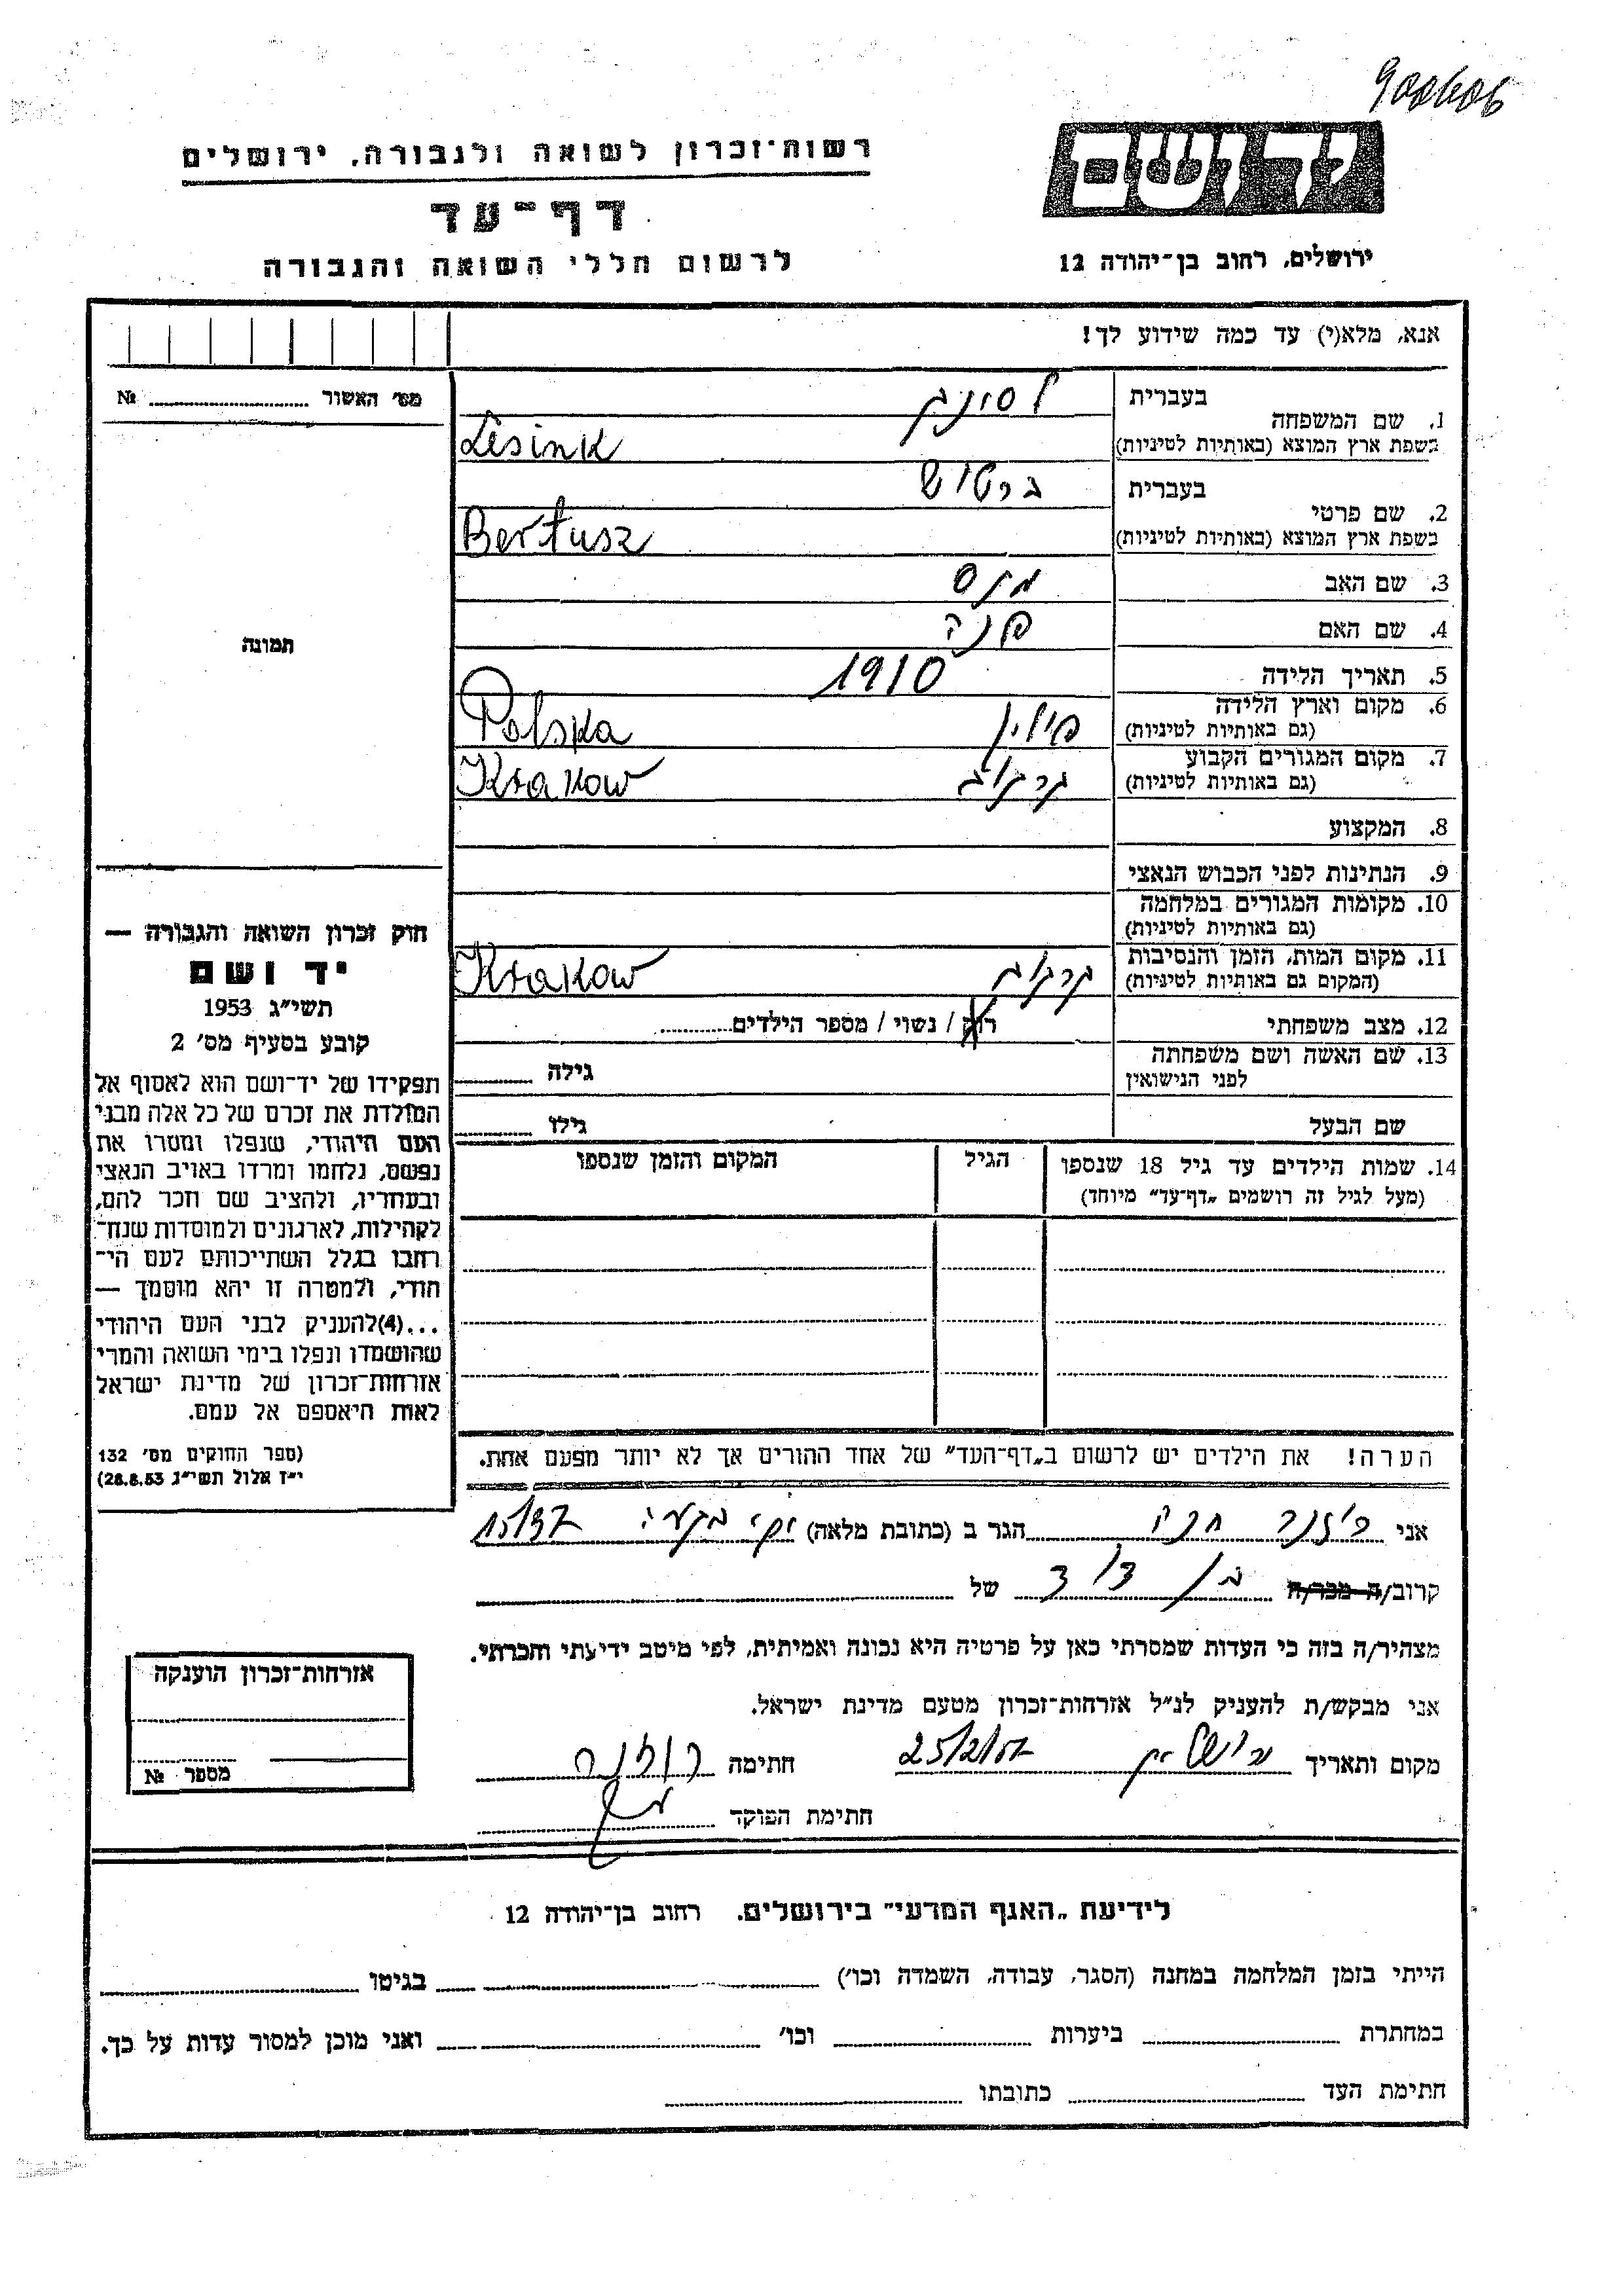 900606
יד ושם
רשות־זכרון לשואה ולגבורה, ירושלים
דף־עד
לרשום חללי השואה והגבורה
ירושלים, רחוב בן־יהודה 12
אנא, מלא(י) עד כמה שידוע לך!
מס׳ האשור № ........
בעברית לסינק
1. שם המשפחה
בשפת ארץ המוצא (באותיות לטיניות) Lesink
בעברית ברטוש
2. שם פרטי
בשפת ארץ המוצא (באותיות לטיניות) Bertusz
3. שם האב
4. שם האם פנה
5. תאריך הלידה 1910
6. מקום וארץ הלידה פולין Polska
(גם באותיות לטיניות)
7. מקום המגורים הקבוע קרקוב Krakow
(גם באותיות לטיניות)
8. המקצוע
9. הנתינות לפני הכבוש הנאצי
10. מקומות המגורים במלחמה
(גם באותיות לטיניות)
11. מקום המות, הזמן והנסיבות קרקוב Krakow
(המקום גם באותיות לטיניות)
12. מצב משפחתי רוק / נשוי / מספר הילדים........
13. שם האשה ושם משפחתה גילה ........
לפני הנישואין
שם הבעל גילו ........
תמונה
חוק זכרון השואה והגבורה —
יד ושם
תשי״ג 1953
קובע בסעיף מס׳ 2
תפקידו של יד־ושם הוא לאסוף אל
המולדת את זכרם של כל אלה מבני
העם היהודי, שנפלו ומסרו את
נפשם, נלחמו ומרדו באויב הנאצי
ובעוזריו, ולהציב שם וזכר להם,
לקהילות, לארגונים ולמוסדות שנח־
רבו בגלל השתייכותם לעם הי־
הודי, ולמטרה זו יהא מוסמך —
...(4)להעניק לבני העם היהודי
שהושמדו ונפלו בימי השואה והמרי
אזרחות־זכרון של מדינת ישראל
לאות היאספם אל עמם.
(ספר החוקים מס׳ 132
י״ז אלול תשי״ג 28.8.53)
14. שמות הילדים עד גיל 18 שנספו הגיל המקום והזמן שנספו
(מעל לגיל זה רושמים „דף־עד״ מיוחד)
הערה! את הילדים יש לרשום ב„דף־העד״ של אחד ההורים אך לא יותר מפעם אחת.
אני הגר ב (כתובת מלאה) 15/37
קרוב/ה מכר/ה בן דוד של
מצהיר/ה בזה כי העדות שמסרתי כאן על פרטיה היא נכונה ואמיתית, לפי מיטב ידיעתי והכרתי.
אני מבקש/ת להעניק לנ״ל אזרחות־זכרון מטעם מדינת ישראל.
מקום ותאריך ירושלים 25/2/57 חתימה
חתימת הפוקד
אזרחות־זכרון הוענקה
מספר №
לידיעת „האגף המדעי״ בירושלים, רחוב בן־יהודה 12
הייתי בזמן המלחמה במחנה (הסגר, עבודה, השמדה וכו׳) ........ בגיטו ........
במחתרת ........ ביערות ........ וכו׳ ........ ואני מוכן למסור עדות על כך.
חתימת העד ........ כתובתו ........